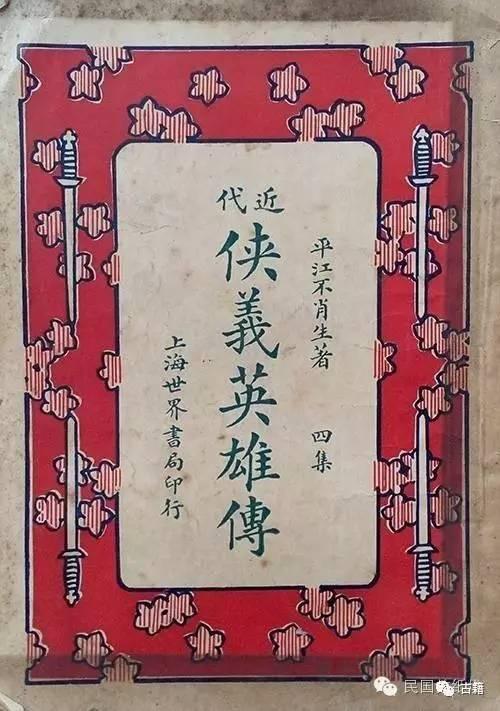 近代
俠義英雄傳
平江不肖生著 四集
上海世界書局印行
民国
古籍